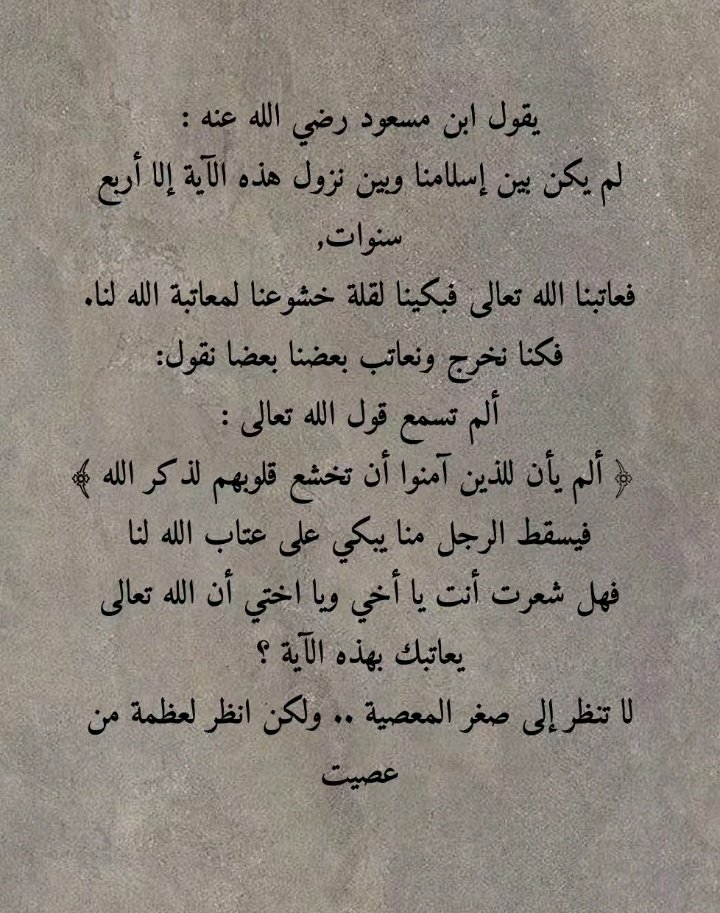 يقول ابن مسعود رضي الله عنه :
لم يكن بين إسلامنا وبين نزول هذه الآية إلا أربع
سنوات,
فعاتبنا الله تعالى فبكينا لقلة خشوعنا لمعاتبة الله لنا.
فكنا نخرج ونعاتب بعضنا بعضا نقول:
ألم تسمع قول الله تعالى :
﴿ ألم يأن للذين آمنوا أن تخشع قلوبهم لذكر الله ﴾
فيسقط الرجل منا يبكي على عتاب الله لنا
فهل شعرت أنت يا أخي ويا اختي أن الله تعالى
يعاتبك بهذه الآية ؟
لا تنظر إلى صغر المعصية .. ولكن انظر لعظمة من
عصيت